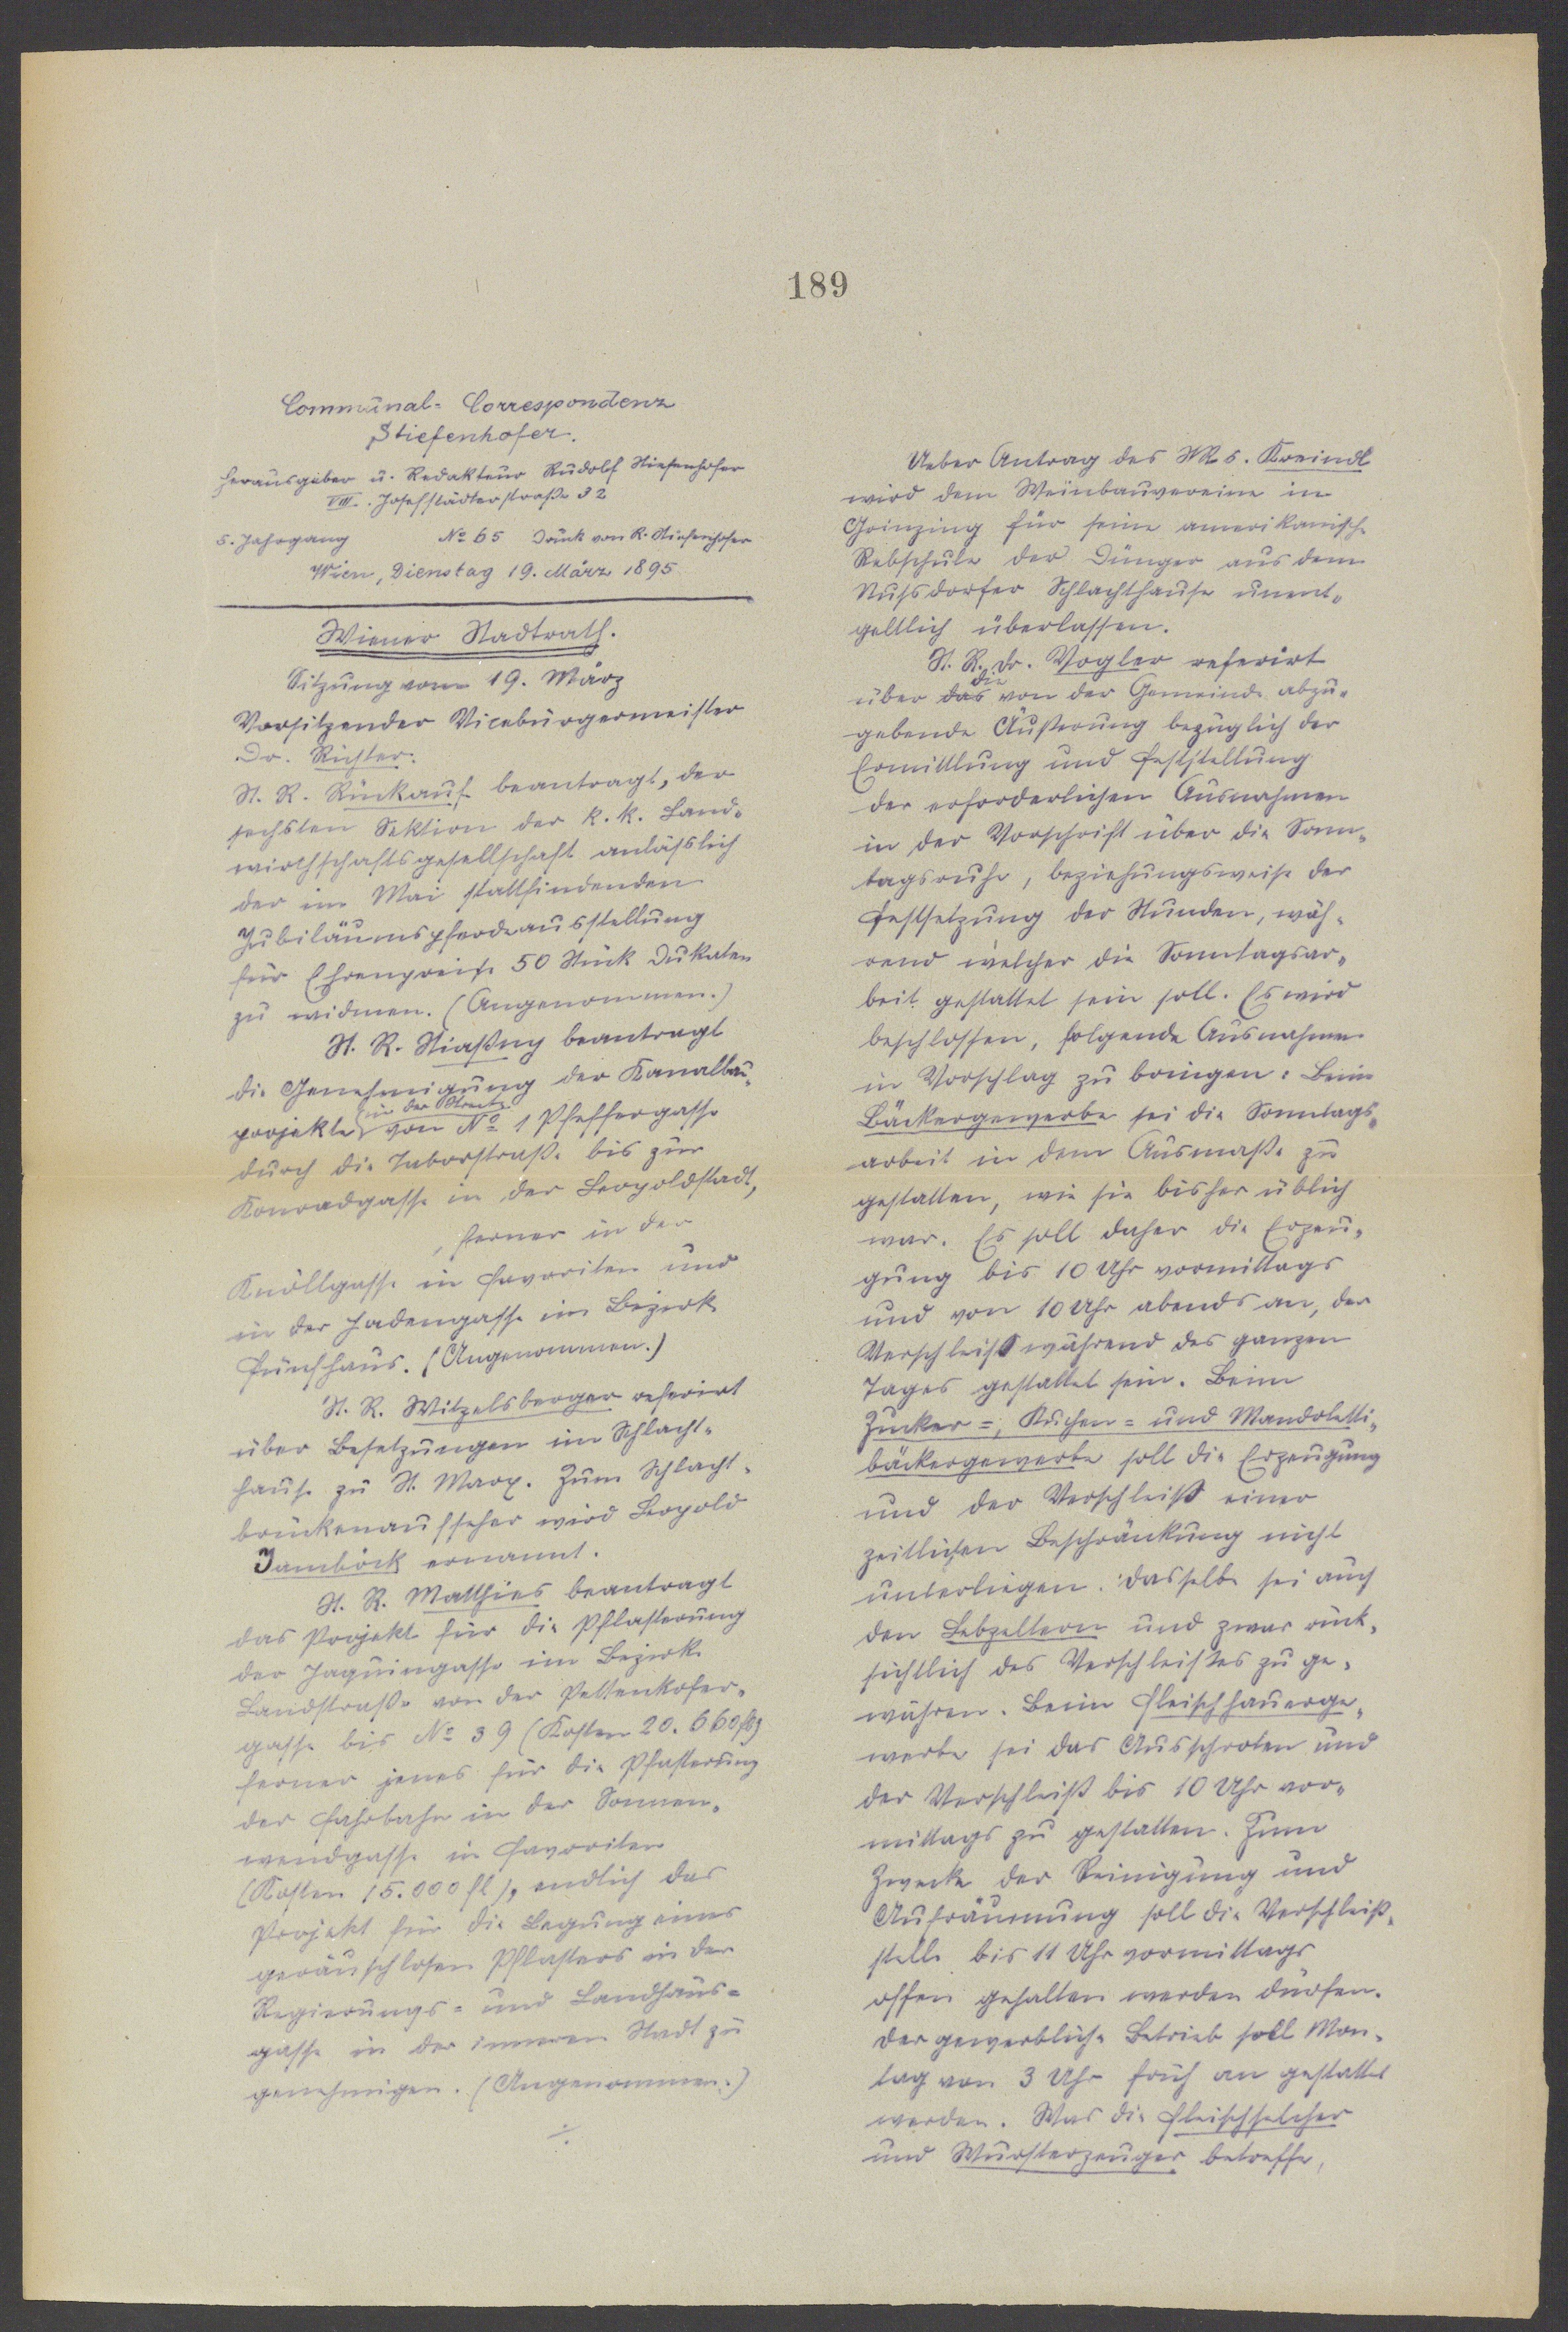 189
Communal-Correspondenz
Stiefenhofer.
Herausgeber u. Redakteur Rudolf Stiefenhofer
VIII. Josefstädterstraße 32
5. Jahrgang No 65 Druck von R. Stiefenhofer
Wien, Dienstag 19. März 1895
Wiener Stadtrath.
Sitzung vom 19. März
Vorsitzender Vicebürgermeister
Dr. Richter.
St. R. Rückauf beantragt, der
sechsten Sektion der k. k. Land-
wirthschaftsgesellschaft anläßlich
der im Mai stattfindenden
Jubiläumspferdeausstellung
für Ehrenpreise 50 Stück Dukaten
zu widmen. (Angenommen.)
St. R. Stiaßny beantragt
die Genehmigung der Kanalbau-
projekte in der Strecke von No 1 Pfeffergasse
durch die Taborstraße bis zur
Konradgasse in der Leopoldstadt,
, ferner in der
Knöllgasse in Favoriten und
in der Hadengasse im Bezirk
Fünfhaus. (Angenommen.)
St. R. Witzelsberger referirt
über Besetzungen im Schlacht-
hause zu St. Marx. Zum Schlacht-
brückenaufseher wird Leopold
Jamböck ernannt.
St. R. Matthies beantragt
das Projekt für die Pflasterung
der Jaquingasse im Bezirk
Landstraße von der Pettenkofer-
gasse bis No 39 (Kosten 20.660 fl)
ferner jenes für die Pflasterung
der Fahrbahn in der Sonnen-
wendgasse in Favoriten
(Kosten 15.000 fl), endlich das
Projekt für die Legung eines
geräuschlosen Pflasters in der
Regierungs- und Landhaus-
gasse in der inneren Stadt zu
genehmigen. (Angenommen.)
Ueber Antrag des StR. Kreindl
wird dem Weinbauvereine in
Grinzing für seine amerikanische
Rebschule der Dünger aus dem
Nußdorfer Schlachthause unent-
geltlich überlassen.
St. R. Dr. Vogler referirt
über das die von der Gemeinde abzu-
gebende Äußerung bezüglich der
Ermittlung und Feststellung
der erforderlichen Ausnahmen
in der Vorschrift über die Sonn-
tagsruhe, beziehungsweise der
Festsetzung der Stunden, wäh-
rend welcher die Sonntagsar-
beit gestattet sein soll. Es wird
beschlossen, folgende Ausnahmen
in Vorschlag zu bringen: Beim
Bäckergewerbe sei die Sonntags-
arbeit in dem Ausmaße zu
gestatten, wie sie bisher üblich
war. Es soll daher die Erzeu-
gung bis 10 Uhr vormittags
und von 10 Uhr abends an, der
Verschleiß während des ganzen
Tages gestattet sein. Beim
Zucker-, Kuchen- und Mandoletti-
bäckergewerbe soll die Erzeugung
und der Verschleiß einer
zeitlichen Beschränkung nicht
unterliegen. Dasselbe sei auch
den Lebzeltern und zwar rück-
sichtlich des Verschleißes zu ge-
währen. Beim Fleischhauerge-
werbe sei das Ausschroten und
der Verschleiß bis 10 Uhr vor-
mittags zu gestatten. Zum
Zwecke der Reinigung und
Aufräumung soll die Verschleiß-
stelle bis 11 Uhr vormittags
offen gehalten werden dürfen.
Der gewerbliche Betrieb soll Mon-
tag von 3 Uhr früh an gestattet
werden. Was die Fleischselcher
und Wursterzeuger betreffe,